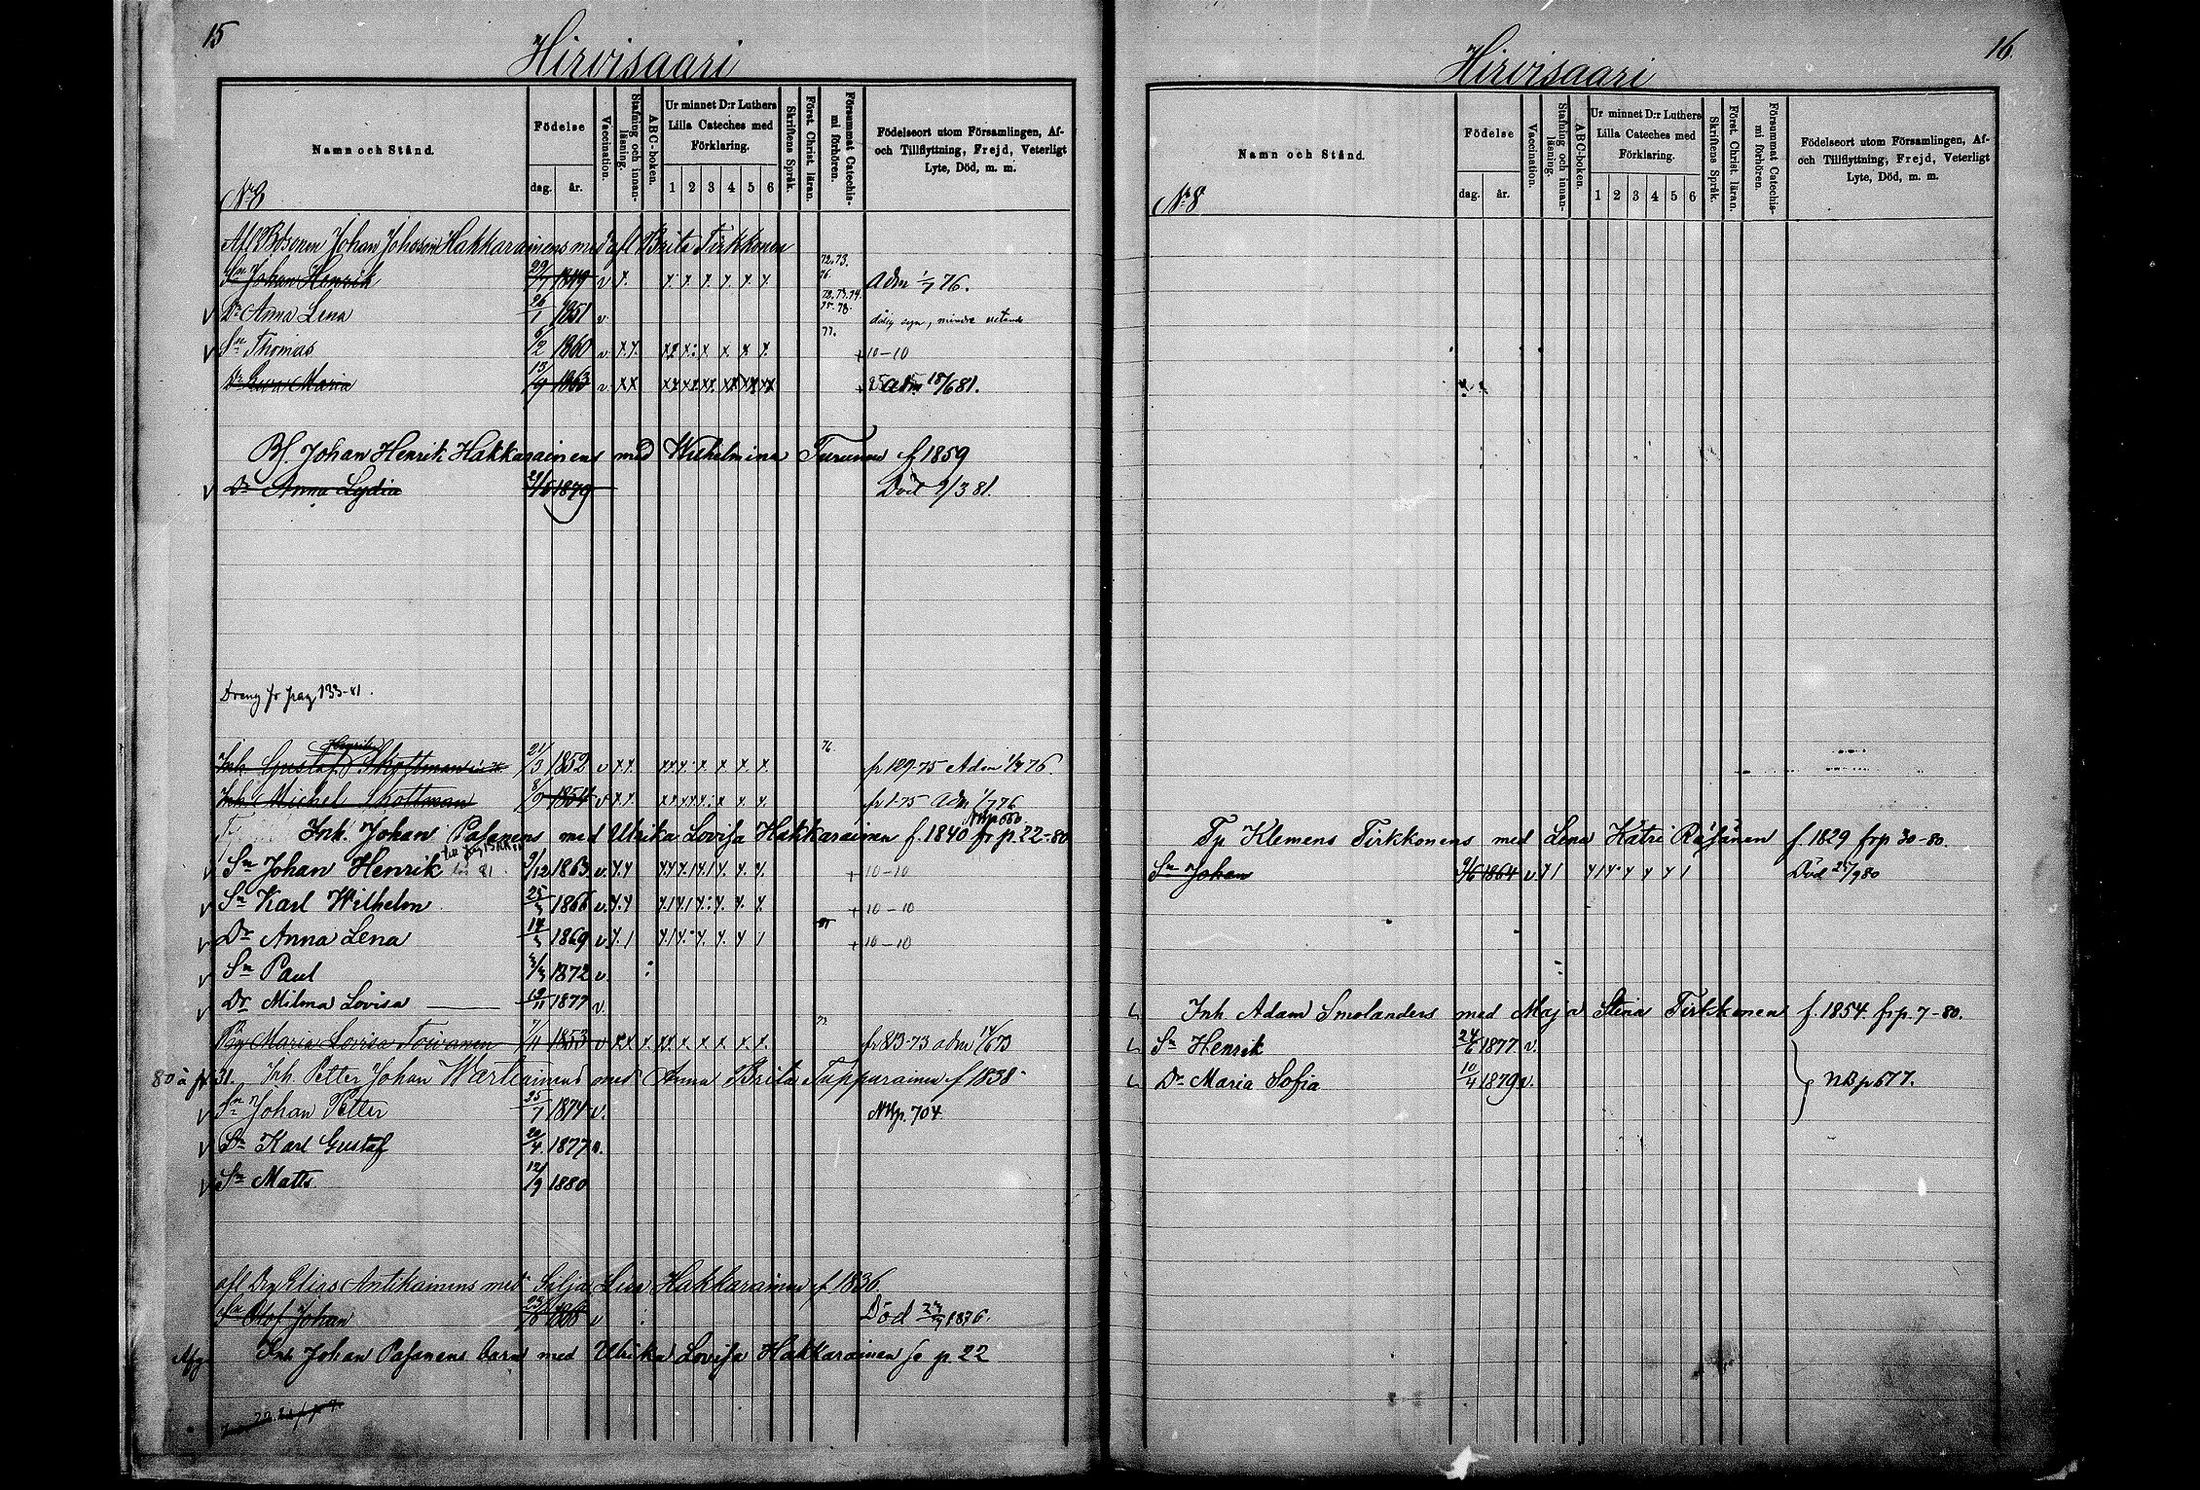 15
Hirvisaari
Namn och Stånd.
Födelse
dag.
år.
Vaccination.
Stafning och innan-
läsning.
ABC-boken.
Ur minnet D:r Luthers
Lilla Cateches med
Förklaring.
1 2 3 4 5 6
Skriftens Språk.
Först. Christ. läran.
Försummat Catechis-
mi förhören.
Födelseort utom Församlingen, Af-
och Tillflyttning, Frejd, Veterligt
Lyte, Död, m. m.
No 8
Johan Hakkarainens med afl Brita Tirkkonen
72.73.
Sn Johan Henrik 1849 v x. x x x x x x 76. Adm 1/7 76.
72.73.74.
V Dr Anna Lena 26/1 1851 v 75.78. dålig syn, mindre vetande
V Sn Thomas 6/2 1860 v x x. 77. + 10-10
Dr Eva Maria 13/9 1863 v x x adm 18/6 81.
Bf. Johan Henrik Hakkarainens med Wilhelmina Turunen f 1859
V Dr Anna Lydia 1879 Död 9/3 81.
Dreng fr pag 133-81.
Henrik
Inh. Gustaf Skottman 21/3 1852 v x x. 76. fr 129-75 Adm 1/7 76.
Inh. Michel Skottman 1854 v x x. fr 1-75 Adm 1/7 76
Inh. Johan Pasanens med Ulrika Lovisa Hakkarainen f. 1840 fr p. 22-80
V Sn Johan Henrik 9/12 1863 v. + 10-10
V Sn Karl Wilhelm 1866 v. + 10-10
V Dr Anna Lena 1869 v + 10-10
V Sn Paul 1872 v.
V Dr Milma Lovisa 19/11 1877 v.
Maria Lovisa Toivanen 7/4 1853 v fr 813-73 adm 14/6 73
80 à p 31. Inh. Petter Johan Wartiainens med Anna Brita Tuppurainen f 1838
V Sn Johan Petter 25/7 1874 v. NB p. 704
V Sn Karl Gustaf 20/4 1877
V Sn Matts 12/9 1880
afl Dg Elias Antikainens med Silja Lisa Hakkarainen f 1836.
Sn Olof Johan v Död 1876.
Inh Johan Pasanens barn med Ulrika Lovisa Hakkarainen se p. 22
16.
Hirvisaari
Namn och Stånd.
Födelse
dag.
år.
Vaccination.
Stafning och innan-
läsning.
ABC-boken.
Ur minnet D:r Luthers
Lilla Cateches med
Förklaring.
1 2 3 4 5 6
Skriftens Språk.
Först. Christ. läran.
Försummat Catechis-
mi förhören.
Födelseort utom Församlingen, Af-
och Tillflyttning, Frejd, Veterligt
Lyte, Död, m. m.
No 8
Tp Klemens Tirkkonens med Lena Katri Räsänen f. 1829 frp 30-80.
Sn Johan 9/6 1864 v. Död 25/9 80
Inh Adam Smolanders med Maja Stina Tirkkonen f. 1854. frp. 7-80.
Sn Henrik 24/6 1877 v.
Dr Maria Sofia 10/4 1879 v. NB p 677.